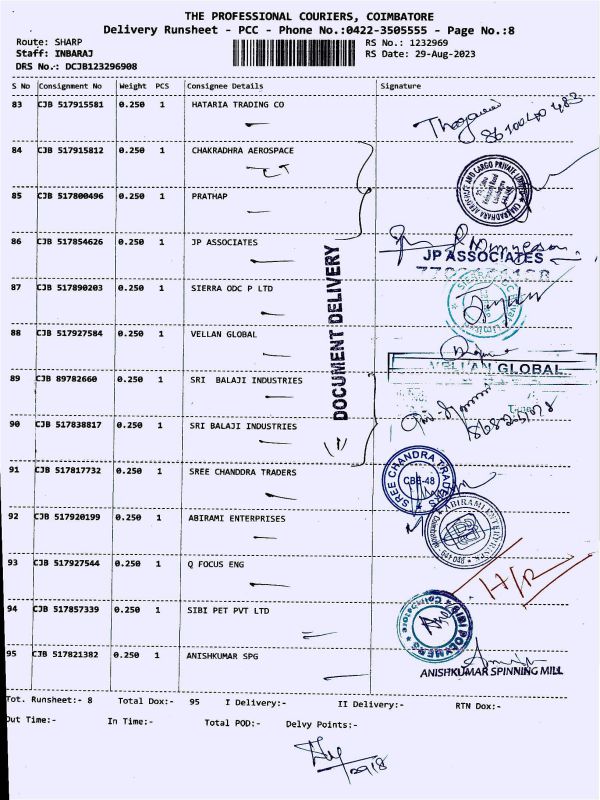 THE PROFESSIONAL COURIERS, COIMBATORE
Delivery Runsheet - PCC - Phone No.:0422-3505555 - Page No.:8
Route: SHARP
RS No.: 1232969
Staff: INBARAJ
RS Date: 29-Aug-2023
DRS No.: DCJB123296908
S No Consignment No Weight PCS Consignee Details Signature
83 CJB 517915581 0.250 1 HATARIA TRADING CO
84 CJB 517915812 0.250 1 CHAKRADHRA AEROSPACE
85 CJB 517800496 0.250 1 PRATHAP
86 CJB 517854626 0.250 1 JP ASSOCIATES
JP ASSOCIATES
87 CJB 517890203 0.250 1 SIERRA ODC P LTD
DOCUMENT DELIVERY
88 CJB 517927584 0.250 1 VELLAN GLOBAL
VELLAN GLOBAL
89 CJB 89782660 0.250 1 SRI BALAJI INDUSTRIES
90 CJB 517838817 0.250 1 SRI BALAJI INDUSTRIES
91 CJB 517817732 0.250 1 SREE CHANDDRA TRADERS
SREE CHANDRA TRADERS
CBE-48
92 CJB 517920199 0.250 1 ABIRAMI ENTERPRISES
ABIRAMI ENTERPRISES
93 CJB 517927544 0.250 1 Q FOCUS ENG
H/R
94 CJB 517857339 0.250 1 SIBI PET PVT LTD
SIBI POLYMERS
Coimbatore
95 CJB 517821382 0.250 1 ANISHKUMAR SPG
ANISHKUMAR SPINNING MILL
Tot. Runsheet:- 8 Total Dox:- 95 I Delivery:- II Delivery:- RTN Dox:-
Out Time:- In Time:- Total POD:- Delvy Points:-